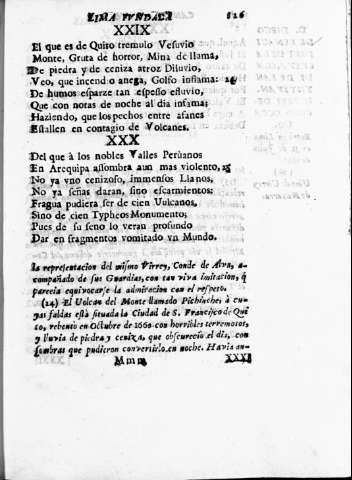 LIMA FUNDADA 126
XXIX
El que es de Quito tremulo Vesuvio
Monte, Gruta de horror, Mina de llama,
De piedra y de ceniza atroz Diluvio,
Veo, que incendio anega, Golfo inflama: 14
De humos esparze tan espesso efluvio,
Que con notas de noche al dia infama;
Haziendo, que los pechos entre afanes
Estallen en contagio de Volcanes.
XXX
Del que à los nobles Valles Perùanos
En Arequipa assombra aun mas violento, 15
No ya vno cenizoso, immensos Llanos,
No ya señas daran, sino escarmientos:
Fragua pudiera ser de cien Vulcanos,
Sino de cien Typheos Monumento;
Pues de su seno lo veràn profundo
Dar en fragmentos vomitado vn Mundo.
la representacion del mismo Virrey, Conde de Alva, a-
compañado de sus Guardias, con tan viva imitacion, q̃
parecìa equivocarse la admiracion con el respeto.
(14) El Volcan del Monte llamado Pichinche, à cu-
yas faldas està situada la Ciudad de S. Francisco de Qui
to, rebentò en Octubre de 1660 con horribles terremotos,
y lluvia de piedra y ceniza, que obscureciò el dia, con
sombras que pudieron convertirlo en noche. Havia an-
Mmm XXXI